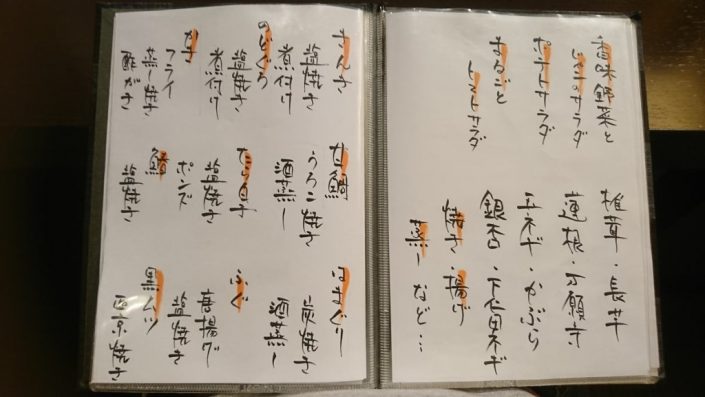 香味野菜と
じゃこのサラダ
ポテトサラダ
あなごと
トマトサラダ
椎茸・長芋
蓮根・万願寺
玉ネギ・かぶら
銀杏・下仁田ネギ
焼き・揚げ
蒸し など…
きんき
塩焼き
煮付け
のどぐろ
塩焼き
煮付け
かき
フライ
蒸し焼き
酢がき
甘鯛
うろこ焼き
酒蒸し
たら白子
塩焼き
ポンズ
塩焼き
はまぐり
酒蒸し
ふぐ
唐揚げ
塩焼き
黒ムツ
西京焼き